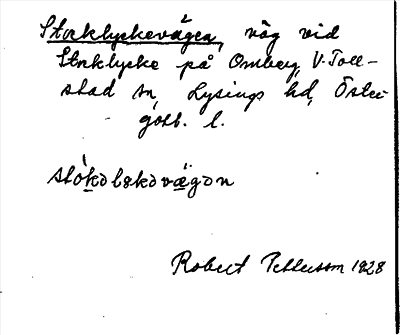 Storklyckevägen, väg vid
Storklycke på Omberg, V. Toll-
stad sn, Lysings hd, Öster
götl. l.
Robert Pettersson 1928